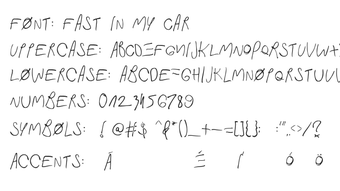 FØNT: FAST IN MY CAR
UPPERCASE: ABCDEFGHIJKLMNOPQRSTUVWX
LØWERCASE: ABCDEFGHIJKLMNØPQRSTUV
NUMBERS: 0123456789
SYMBØLS: [ @#$ ^&*()_+-=[]{}; :'",.<>/?
ACCENTS: Á É Í Ó Ö